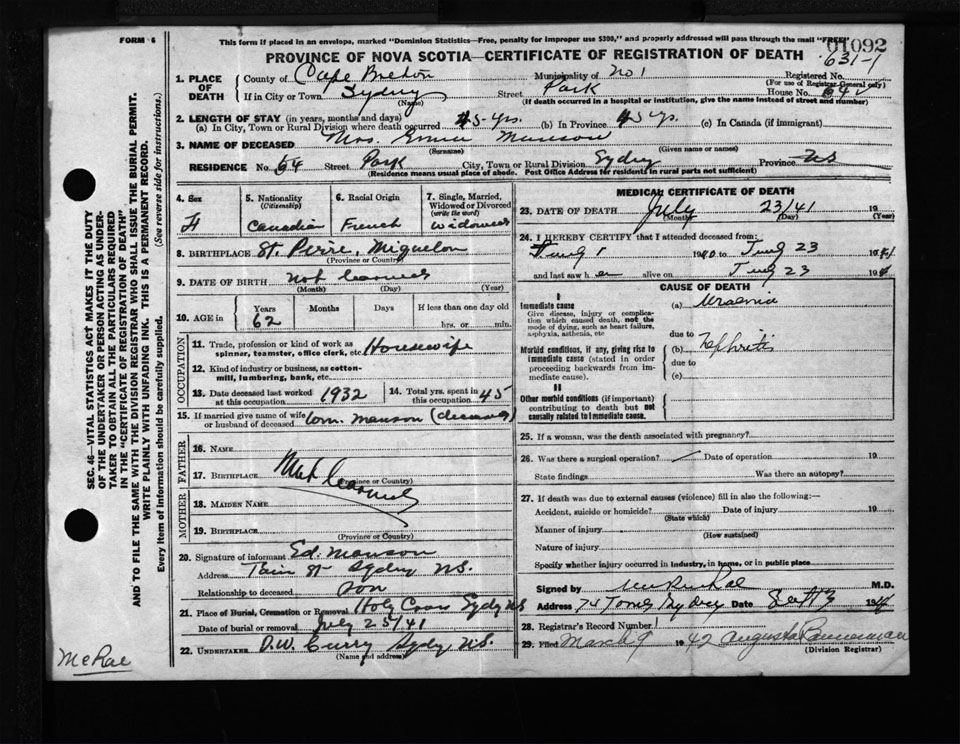 FORM 6
This form if placed in an envelope, marked "Dominion Statistics—Free, penalty for improper use $300," and properly addressed will pass through the mail "FREE"
01092
631-1
PROVINCE OF NOVA SCOTIA—CERTIFICATE OF REGISTRATION OF DEATH
1. PLACE OF DEATH County of Cape Breton Municipality of No 1 Registered No. (For use of Registrar General only)
If in City or Town Sydney (Name) Street Park House No.
(If death occurred in a hospital or institution, give the name instead of street and number)
2. LENGTH OF STAY (in years, months and days)
(a) In City, Town or Rural Division where death occurred 45-yrs. (b) In Province 45 yrs. (c) In Canada (if immigrant)
3. NAME OF DECEASED Mrs. Manson
(Surname) (Given name or names)
RESIDENCE No. 64 Street Park City, Town or Rural Division Sydney Province NS
(Residence means usual place of abode. Post Office Address for residents in rural parts not sufficient)
4. Sex F
5. Nationality (Citizenship) Canadian
6. Racial Origin French
7. Single, Married, Widowed or Divorced (write the word) Widowed
8. BIRTHPLACE St. Pierre, Miquelon
(Province or Country)
9. DATE OF BIRTH Not learned
(Month) (Day) (Year)
10. AGE IN Years 62 Months Days If less than one day old hrs. or min.
OCCUPATION
11. Trade, profession or kind of work as spinner, teamster, office clerk, etc. Housewife
12. Kind of industry or business, as cotton-mill, lumbering, bank, etc.
13. Date deceased last worked at this occupation 1932 14. Total yrs. spent in this occupation 45
15. If married give name of wife or husband of deceased Wm. Manson (deceased)
FATHER
16. NAME
17. BIRTHPLACE Not learned
(Province or Country)
MOTHER
18. MAIDEN NAME
19. BIRTHPLACE
(Province or Country)
20. Signature of informant Ed. Manson
Address St Sydney NS.
Relationship to deceased son
21. Place of Burial, Cremation or Removal Holy Cross Sydney NS
Date of burial or removal July 25/41
22. UNDERTAKER D.W. Curry Sydney N.S.
(Name and address)
MEDICAL CERTIFICATE OF DEATH
23. DATE OF DEATH July 23/41 19
(Month) (Day) (Year)
24. I HEREBY CERTIFY that I attended deceased from:
1 1940 to July 23 1941
and last saw her alive on July 23 194
CAUSE OF DEATH
I
Immediate cause
Give disease, injury or complication which caused death, not the mode of dying, such as heart failure, asphyxia, asthenia, etc
(a) Uraemia
due to
Morbid conditions, if any, giving rise to immediate cause (stated in order proceeding backwards from immediate cause).
(b) Nephritis
due to
(c)
II
Other morbid conditions (if important) contributing to death but not causally related to immediate cause.
25. If a woman, was the death associated with pregnancy?
26. Was there a surgical operation? Date of operation 19
State findings Was there an autopsy?
27. If death was due to external causes (violence) fill in also the following:—
Accident, suicide or homicide? Date of injury 19
(State which)
Manner of injury
(How sustained)
Nature of injury
Specify whether injury occurred in industry, in home, or in public place
Signed McRae M.D.
Address 74 Date 19
28. Registrar's Record Number 1
29. Filed March 9 1942 Augusta Bannerman
(Division Registrar)
SEC. 46—VITAL STATISTICS ACT MAKES IT THE DUTY
OF THE UNDERTAKER OR PERSON ACTING AS UNDER-
TAKER TO OBTAIN ALL THE PARTICULARS REQUIRED
IN THE "CERTIFICATE OF REGISTRATION OF DEATH"
AND TO FILE THE SAME WITH THE DIVISION REGISTRAR WHO SHALL ISSUE THE BURIAL PERMIT.
WRITE PLAINLY WITH UNFADING INK. THIS IS A PERMANENT RECORD.
Every item of information should be carefully supplied. (See reverse side for instructions.)
McRae